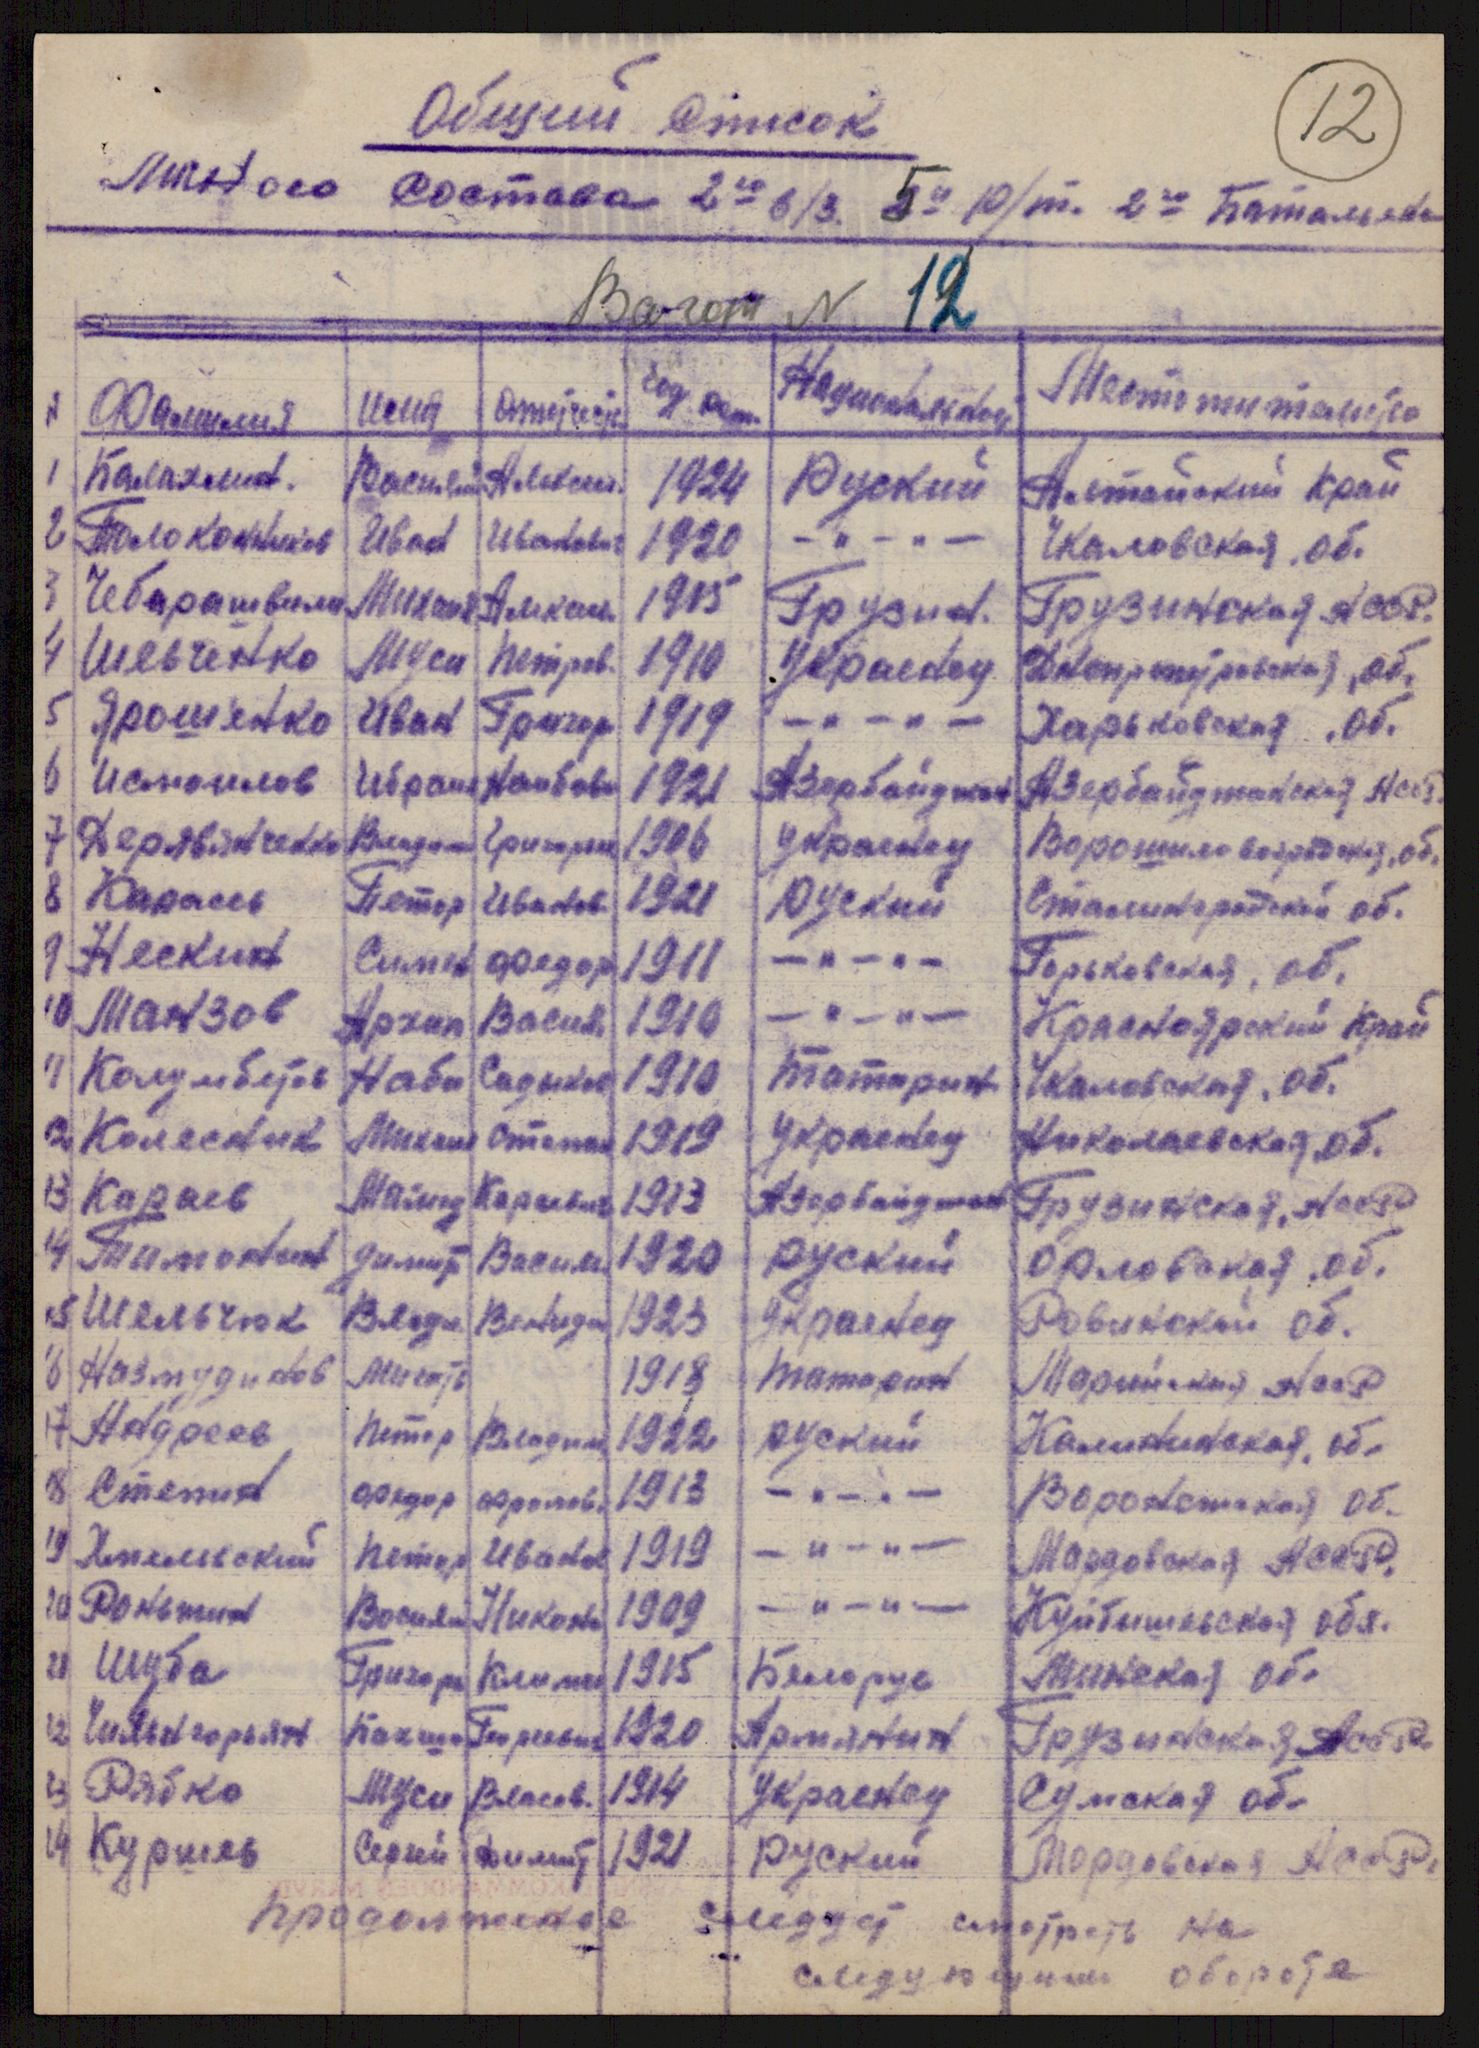 12
Общий Список
Личного Состава 2го в/з. 5й Р/т. 2го Батальена
Вагон N 12
N Фамилия Имя Отчеств. Год рож. Национальност Место жительство
1 Балахмин. Василий Алексан. 1924 Руский Алтайский Край
2 Толоконников Иван Иванович 1920 —"—"— Чкаловская. об.
3 Чебарашвили Михаил Алексан. 1915 Грузин. Грузинская АССР.
4 Шевченко Муси Петров. 1910 Украенец Днепропетровская, об.
5 Ярошенко Иван Григор 1919 —"—"— Харьковская. об.
6 Исмоилов Ибраим 1921 Азербайджан Азербайджанская АССР.
7 Дерявянченко Владим Григорев 1906 Украенец Ворошиловоградская. об.
8 Карась Петор Иванов. 1921 Руский Сталинградской об.
9 Нескин Симен Федор 1911 —"—"— Горьковская. об.
10 Манзов Архип Васил. 1910 —"—"— Красноярский Край
11 Колумбетов Наби Садыков 1910 Татарин Чкаловская. об.
12 Колесник Михаил Степан 1919 Украенец Николаевская, об.
13 Караев Мамед Караевич 1913 Азербайджан Грузинская, АССР
14 Тимонин Димит Васили. 1920 Руский Орловская. об.
15 Шельчюк Владим 1923 Украенец Ровинский об.
16 Назмудинов 1918 Татарин Марийская АССР
17 Андреев Петор Владим 1922 Руский Калининская. об.
18 Степин Федор Фролов. 1913 —"—"— Воронежская об.
19 Хмелевский Петор Иванов 1919 —"—"— Мордовская АССР.
20 Роньжин Василий Никоно 1909 —"—"— Куйбышевская обл.
21 Шуба Григорь Климен 1915 Белорус Минская об.
22 Чильнгорьян Георгевич 1920 Армянин Грузинская АССР.
23 Рябко Муси Власов. 1914 Украенец Сумская об.
24 Куршев Сергей Димит 1921 Руский Мордовская АССР.
Продолжение следует смотреть на
следующим обороте